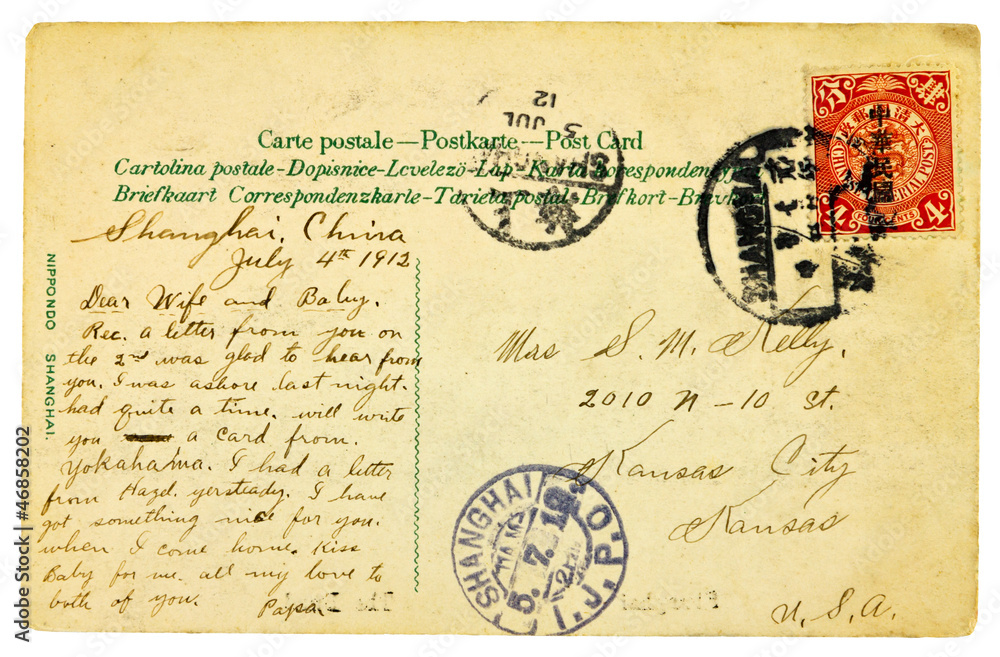 Carte postale—Postkarte—Post Card
Cartolina postale-Dopisnice-Levelezö-Lap-Karta korespondencyjna
Briefkaart Correspondenzkarte-Tarjeta postal-Brefkort-Brevkort
NIPPONDO SHANGHAI.
Shanghai, China
July 4th 1912
Dear Wife and Baby.
Rec. a letter from you on
the 2nd was glad to hear from
you. I was ashore last night.
had quite a time. will write
you a card from.
Yokahama. I had a letter
from Hazel. yersteady. I have
got something nice for you.
when I come home. Kiss
Baby for me. all my love to
both of you.
Papa
Mrs S. M. Kelly.
2010 N – 10 st.
Kansas City
Kansas
U.S.A.
5
JUL
12
SHANGHAI
大清郵政
中華民國
CHINESE IMPERIAL POST
4 FOUR CENTS 4
SHANGHAI I.J.P.O.
5.7.12
Adobe Stock | #46858202